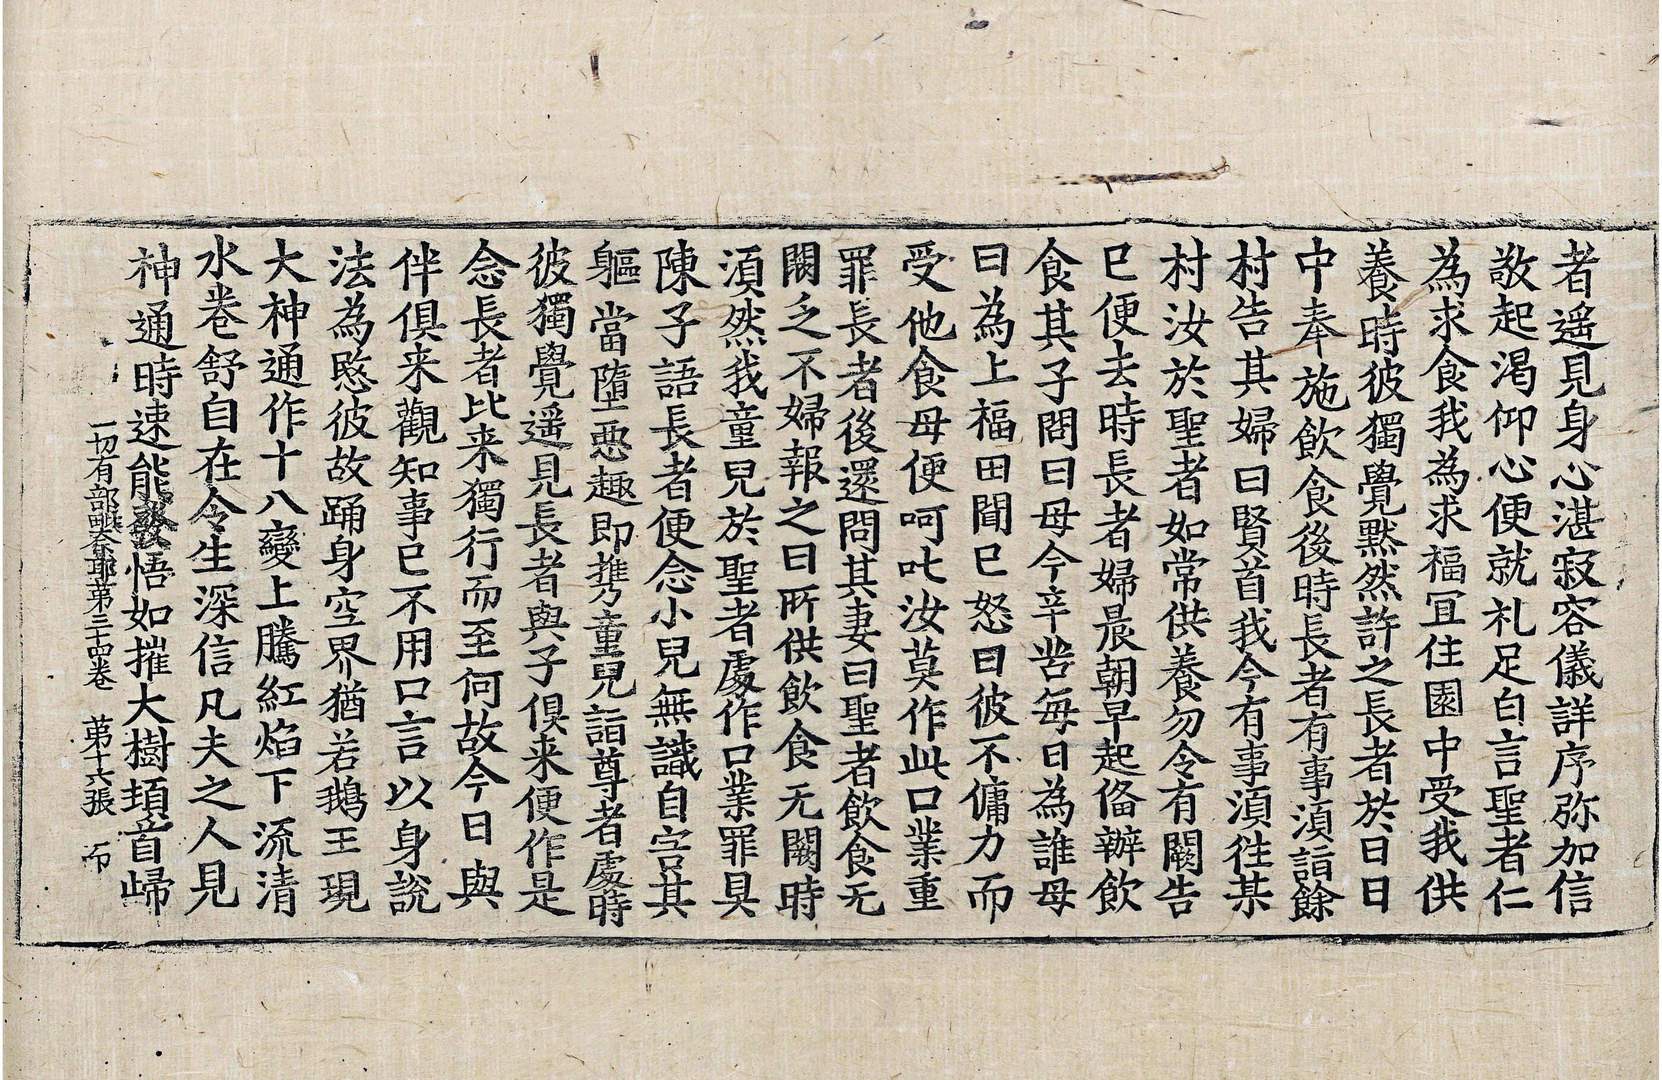 者遥見身心湛寂容儀詳序弥加信
敬起渇仰心便就礼足白言聖者仁
為求食我為求福冝住園中受我供
養時彼獨覺黙然許之長者於日日
中奉施飲食後時長者有事湏詣餘
村告其婦曰賢首我今有事湏徃某
村汝於聖者如常供養勿令有闕告
已便去時長者婦晨朝早起俻辦飲
食其子問曰母今辛苦毎日為誰母
曰為上福田聞已怒曰彼不傭力而
受他食母便呵叱汝莫作此口業重
罪長者後還問其妻曰聖者飲食无
闕乏不婦報之曰所供飲食无闕時
湏然我童兒於聖者處作口業罪具
陳子語長者便念小兒無識自害其
軀當墮惡趣即携童兒詣尊者處時
彼獨覺遥見長者與子俱来便作是
念長者比来獨行而至何故今日與
伴俱来觀知事已不用口言以身說
法為愍彼故踊身空界猶若鵝王現
大神通作十八變上騰紅焰下流清
水卷舒自在令生深信凡夫之人見
神通時速能發悟如摧大樹頃首歸
一切有部毗奈耶第三十四卷　第十六張　尓